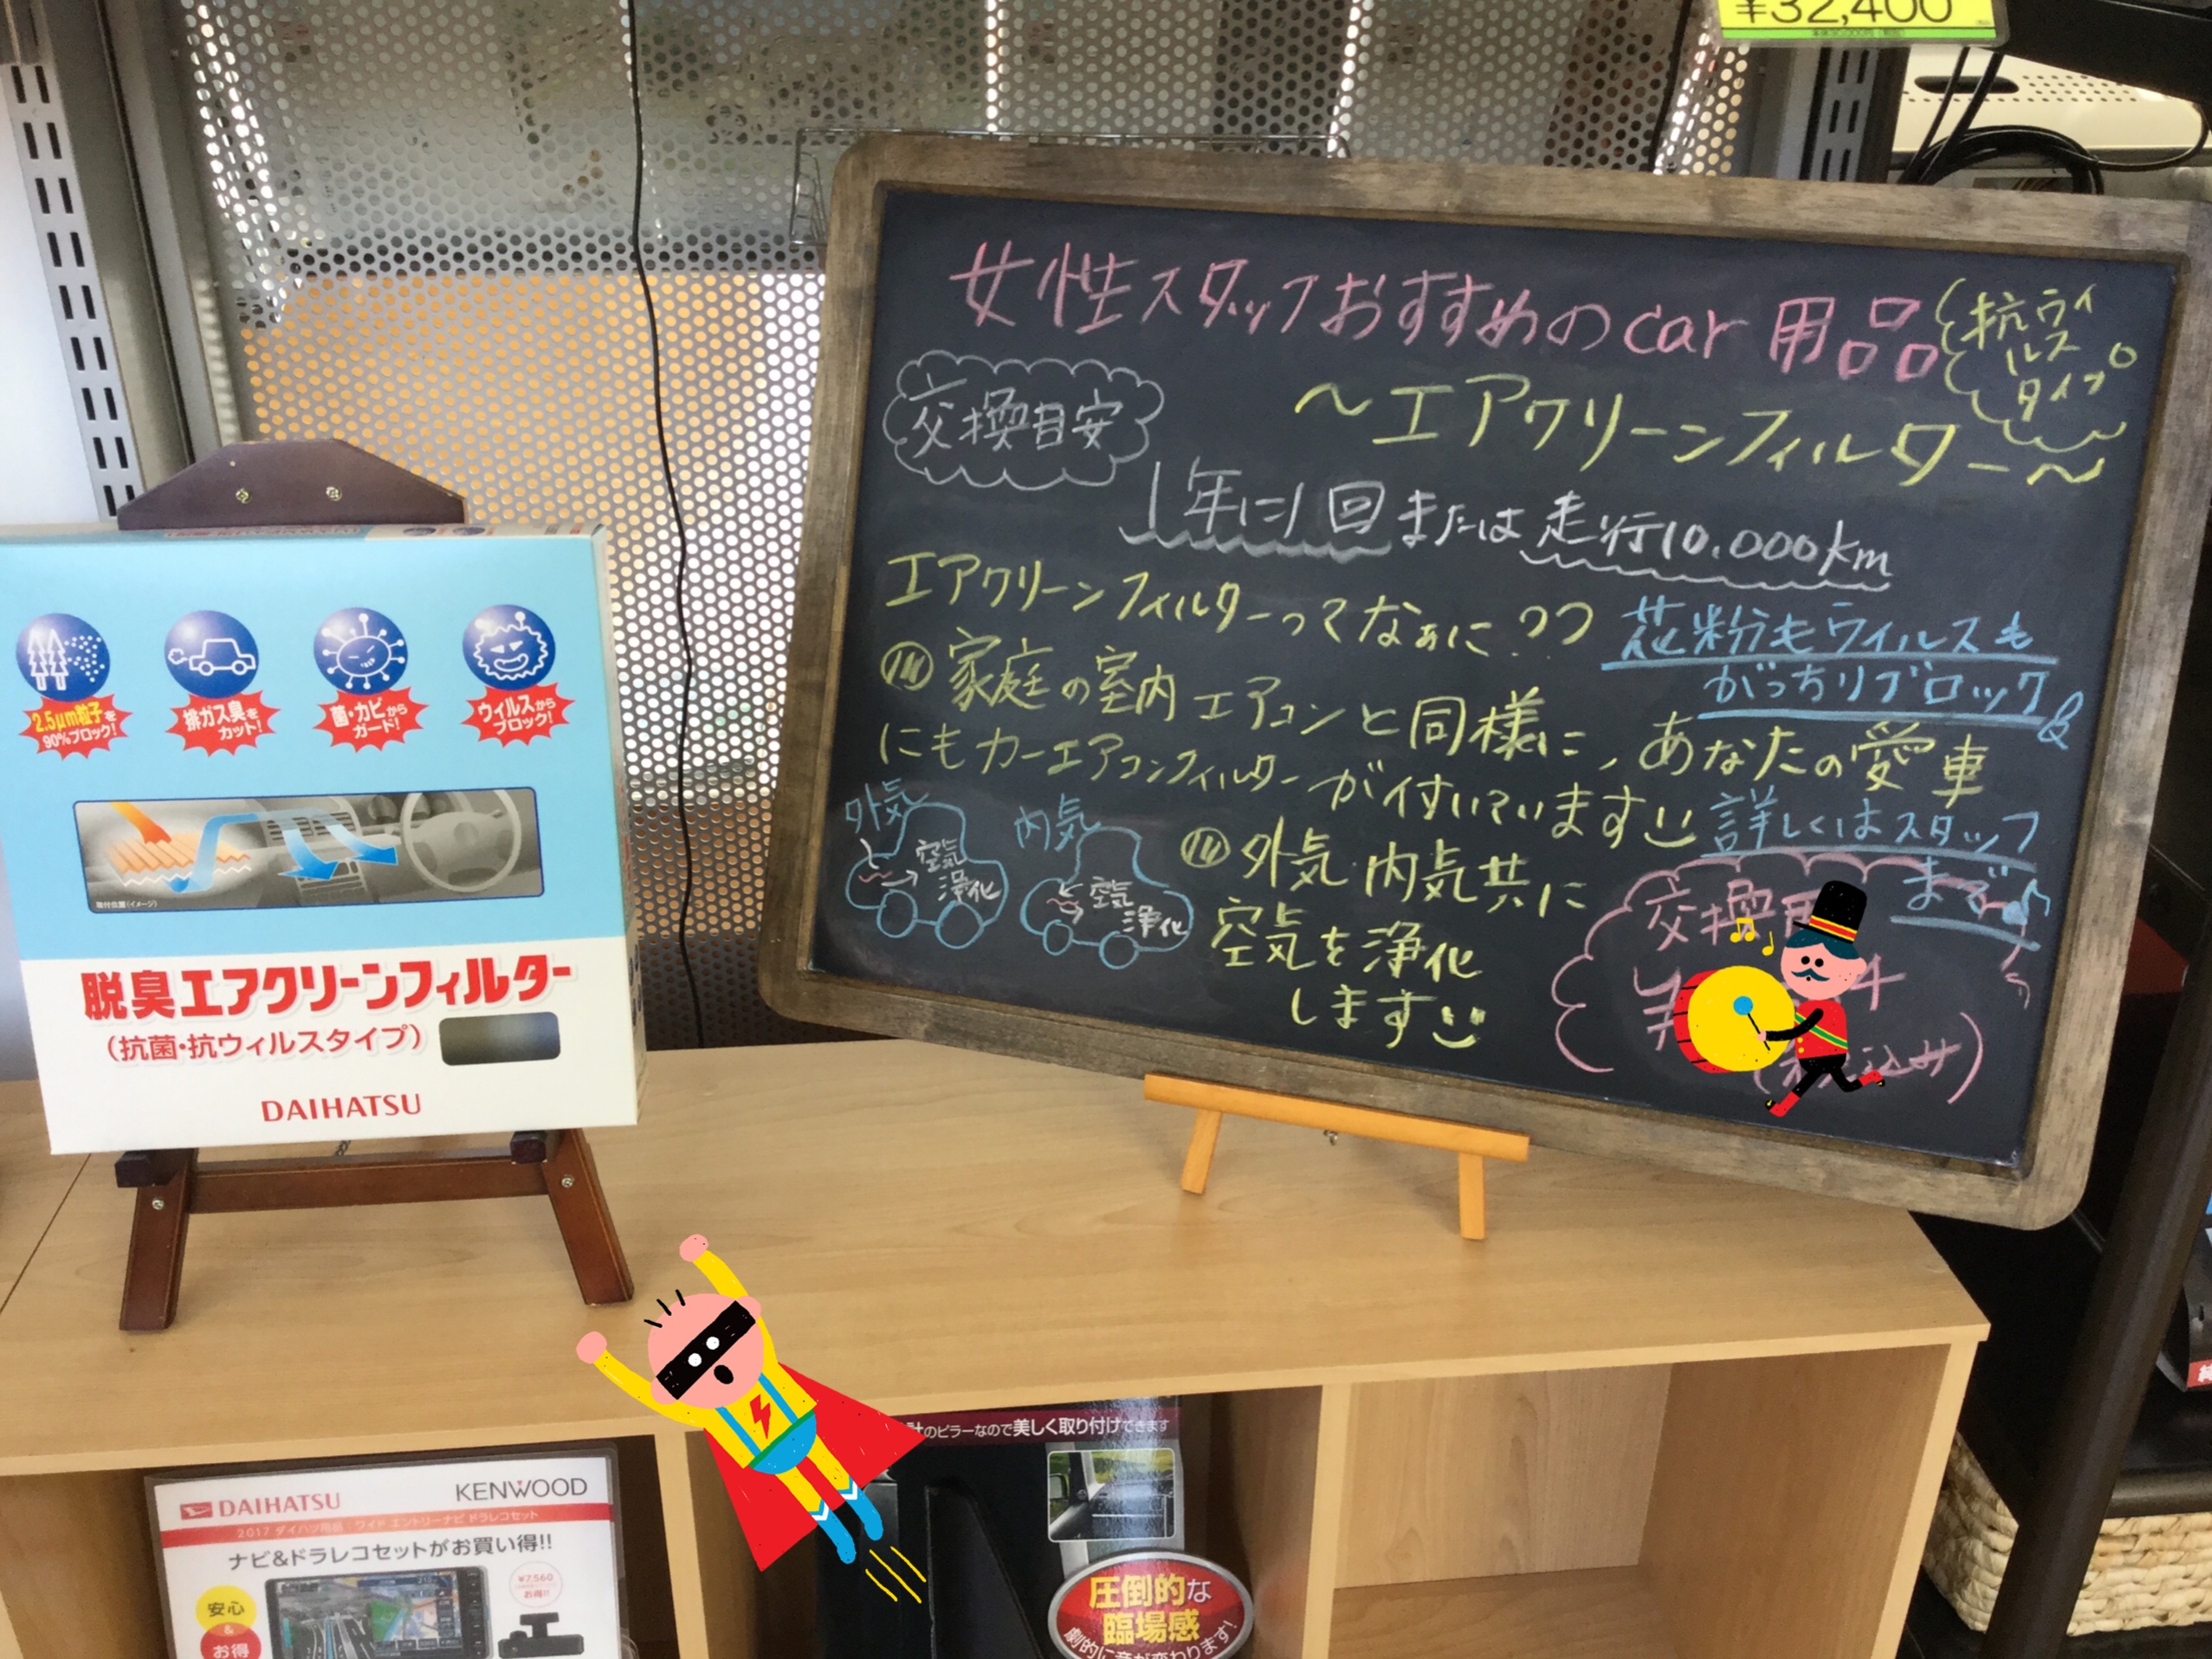 ¥32,400
女性スタッフおすすめのcar用品
抗ウイ
ルス
タイプ
～エアクリーンフィルター～
交換目安
1年に1回または走行10.000km
エアクリーンフィルターってなぁに??
花粉もウイルスも
がっちりブロック
&
家庭の室内エアコンと同様に、あなたの愛車
にもカーエアコンフィルターが付いています
詳しくはスタッフ
まで♪
外気
空気
浄化
内気
空気
浄化
外気内気共に
空気を浄化
します
交換
込み)
2.5μm粒子を
90%ブロック!
排ガス臭を
カット!
菌・カビから
ガード!
ウィルスから
ブロック!
取付位置(イメージ)
脱臭エアクリーンフィルター
(抗菌・抗ウィルスタイプ)
DAIHATSU
DAIHATSU
KENWOOD
2017 ダイハツ用品 ワイド エントリーナビ ドラレコセット
ナビ&ドラレコセットがお買い得!!
安心
&
お得
¥7,560
お得!!
のピラーなので美しく取り付けできます
圧倒的な
臨場感
劇的に音が変わります!